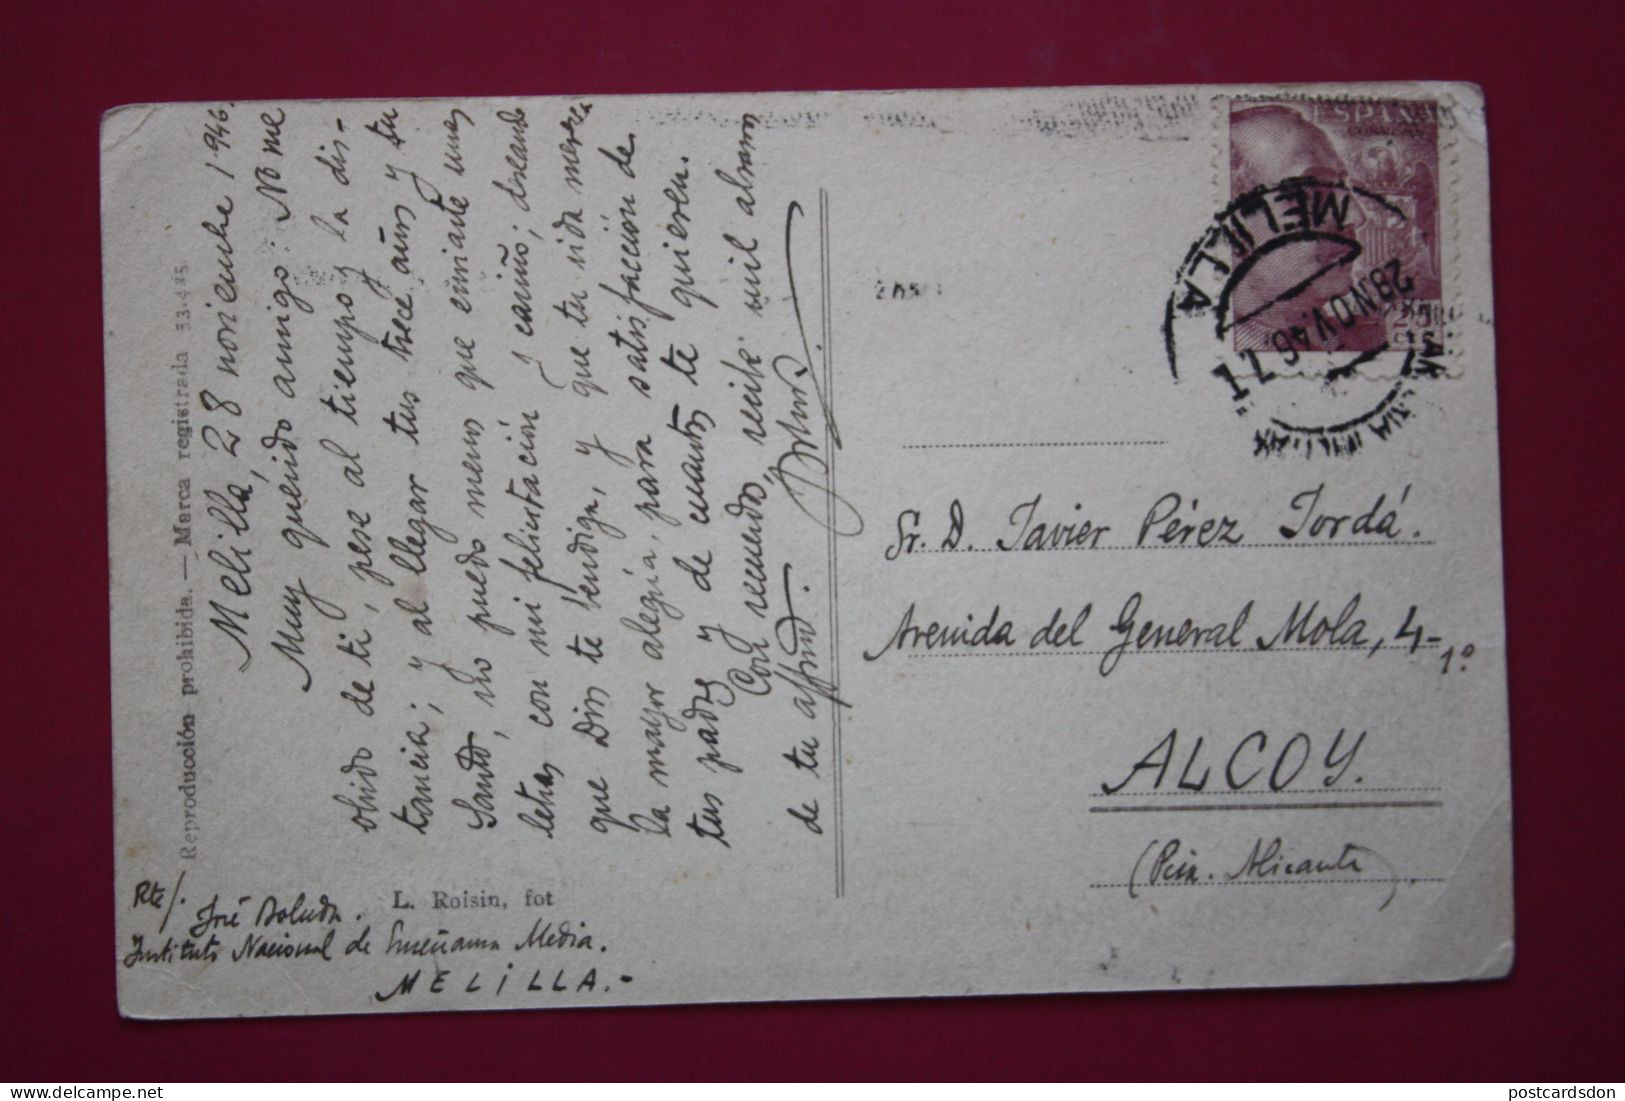 Melilla, 28 noviembre 1.946.
Muy querido amigo: No me
olvido de ti, pese al tiempo y la dis-
tancia; y al llegar tus trece años y tu
Santo, no puedo menos que enviarte unas
letras con mi felicitación y cariño; deseando
que Dios te bendiga, y que tu vida merezca
la mayor alegría, para satisfacción de
tus padres y de cuantos te quieren.
Con recuerdos, recibe mil abrazos
de tu affmo.
Reproducción prohibida. — Marca registrada 33.435
Rte/. José Boluda.
Instituto Nacional de Enseñanza Media.
MELILLA.-
L. Roisin, fot
ESPAÑA
CORREOS
MELILLA
28 NOV. 46
Sr. D. Javier Pérez Jordá.
Avenida del General Mola, 4-
1º
ALCOY.
(Pcia. Alicante).
postcardsdon